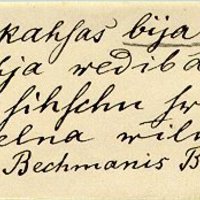 kahsas bija
ja wedib
sihschu
elna wil
Bechmanis B